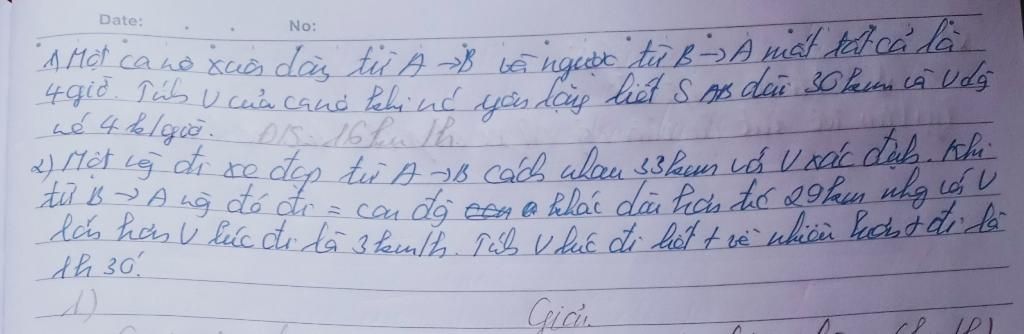 Date: No:
1) Một ca nô xuôi dòng từ A → B và ngược từ B → A mất tất cả là
4 giờ. Tính V của ca nô khi nó yên lặng biết S AB dài 30 km và V dg
nó 4 k/giờ. ĐS: 16 km/h.
2) Một ng đi xe đạp từ A → B cách nhau 33 km với V xác định. Khi
từ B → A ng đó đi = con dg khác dài hơn trc 29 km nhg với V
lớn hơn V lúc đi là 3 km/h. Tính V lúc đi biết t về nhiều hơn t đi là
1h 30'.
1) Giải